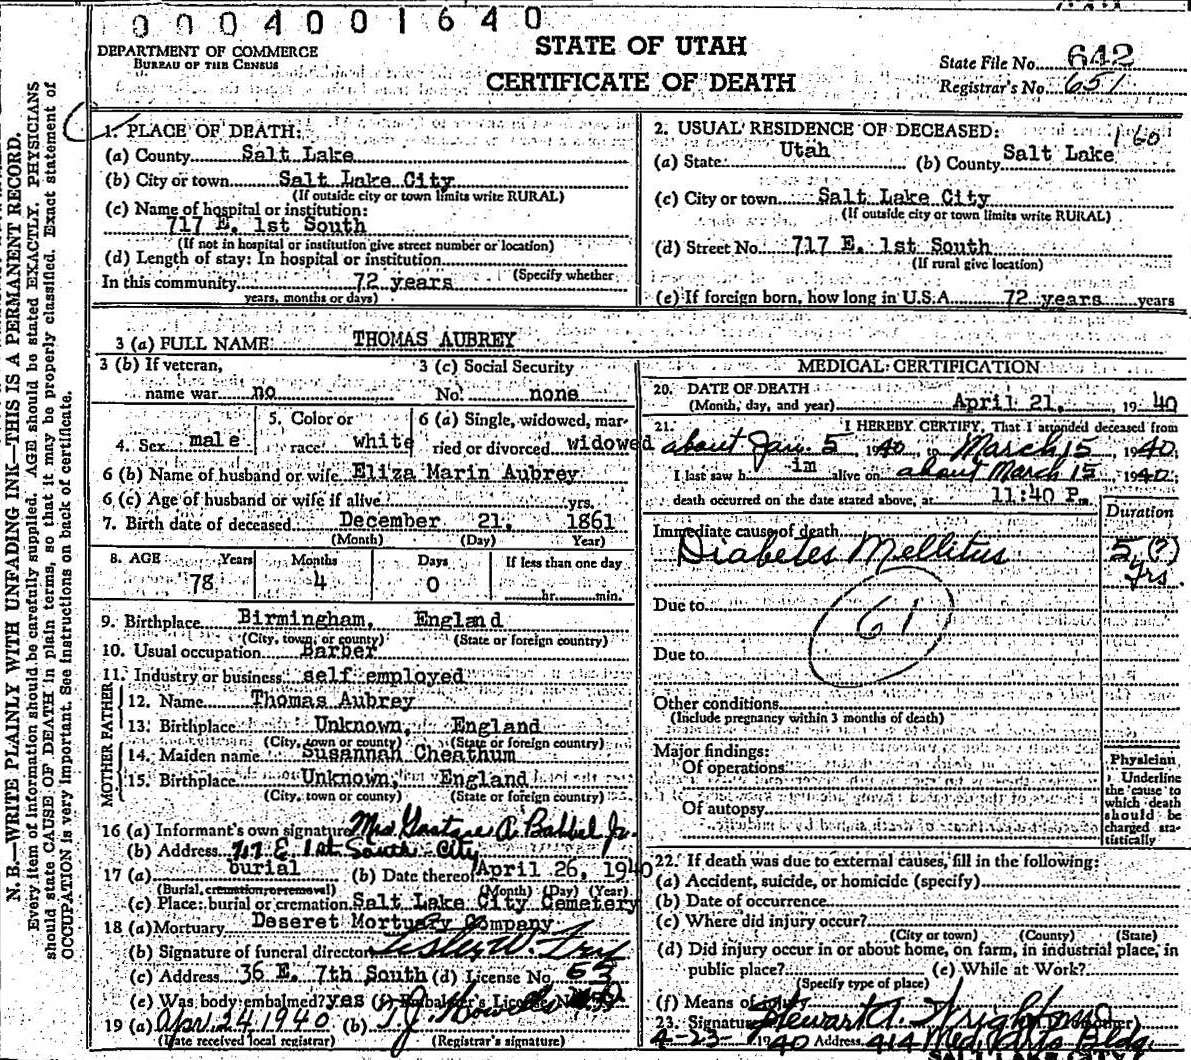 0004001640
DEPARTMENT OF COMMERCE
BUREAU OF THE CENSUS
STATE OF UTAH
CERTIFICATE OF DEATH
State File No. 642
Registrar's No. 651
N. B.—WRITE PLAINLY WITH UNFADING INK—THIS IS A PERMANENT RECORD.
Every item of information should be carefully supplied. AGE should be stated EXACTLY. PHYSICIANS
should state CAUSE OF DEATH in plain terms, so that it may be properly classified. Exact statement of
OCCUPATION is very important. See instructions on back of certificate.
1. PLACE OF DEATH:
(a) County Salt Lake
(b) City or town Salt Lake City
(If outside city or town limits write RURAL)
(c) Name of hospital or institution:
717 E. 1st South
(If not in hospital or institution give street number or location)
(d) Length of stay: In hospital or institution
(Specify whether
In this community 72 years
years, months or days)
2. USUAL RESIDENCE OF DECEASED: 1 60
(a) State Utah (b) County Salt Lake
(c) City or town Salt Lake City
(If outside city or town limits write RURAL)
(d) Street No. 717 E. 1st South
(If rural give location)
(e) If foreign born, how long in U.S.A. 72 years years
3 (a) FULL NAME THOMAS AUBREY
3 (b) If veteran, name war no
3 (c) Social Security No. none
4. Sex male
5. Color or race white
6 (a) Single, widowed, married or divorced widowed
6 (b) Name of husband or wife Eliza Marin Aubrey
6 (c) Age of husband or wife if alive yrs.
7. Birth date of deceased December 21, 1861
(Month) (Day) Year)
8. AGE Years Months Days If less than one day
78 4 0 hr. min.
9. Birthplace Birmingham, England
(City, town, or county) (State or foreign country)
10. Usual occupation Barber
11. Industry or business self employed
FATHER
12. Name Thomas Aubrey
13. Birthplace Unknown, England
(City, town or county) (State or foreign country)
MOTHER
14. Maiden name Susannah Cheathum
15. Birthplace Unknown, England
(City, town or county) (State or foreign country)
16 (a) Informant's own signature Mrs Gustave A. Babbel Jr.
(b) Address 717 E. 1st South City
17 (a) burial (b) Date thereof April 26, 1940
(Burial, cremation, or removal) (Month) (Day) (Year)
(c) Place: burial or cremation Salt Lake City Cemetery
18 (a) Mortuary Deseret Mortuary Company
(b) Signature of funeral director Lesley W Fry
(c) Address 36 E. 7th South (d) License No. 53
(e) Was body embalmed? yes (f) Embalmer's License No.
19 (a) Apr. 24, 1940 (b) T. J. Howells
(Date received local registrar) (Registrar's signature)
MEDICAL CERTIFICATION
20. DATE OF DEATH
(Month, day, and year) April 21, 1940
21. I HEREBY CERTIFY, That I attended deceased from
about Jan. 5 1940, to March 15, 1940;
I last saw h im alive on about March 15, 1940;
death occurred on the date stated above, at 11:40 P.m
Duration
Immediate cause of death
Diabetes Mellitus 5 (?) yrs.
Due to
61
Due to
Other conditions
(Include pregnancy within 3 months of death)
Major findings:
Of operations
Of autopsy
Physician
Underline the cause to which death should be charged statistically
22. If death was due to external causes, fill in the following:
(a) Accident, suicide, or homicide (specify)
(b) Date of occurrence
(c) Where did injury occur?
(City or town) (County) (State)
(d) Did injury occur in or about home, on farm, in industrial place, in
public place? (e) While at Work?
(Specify type of place)
(f) Means of
23. Signature Stewart A. Wright
4-23-1940 Address 414 Med. Arts Bldg.
SALT LAKE CITY